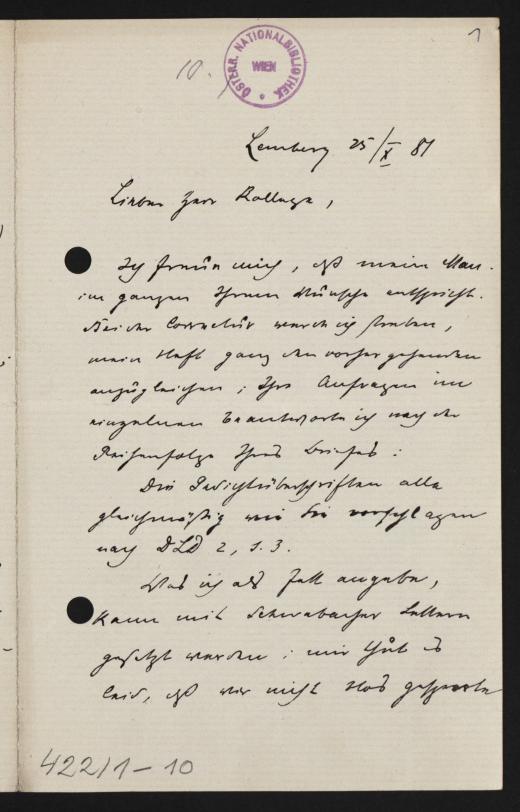 1
10.
ÖSTERR. NATIONALBIBLIOTHEK
WIEN
Lemberg 25/X 81
Lieber Herr Kollege,
Ich freue mich, daß mein Man.
im ganzen Ihrem Wunsche entspricht.
Bei der Correctur werde ich streben,
mein Heft ganz den vorhergehenden
anzugleichen; Ihre Anfragen im
einzelnen beantworte ich nach der
Reihenfolge Ihres Briefes:
Die Gedichtüberschriften alle
gleichmäßig wie Sie vorschlagen
nach DLD 2, S. 3.
Was ich als fett angebe,
kann mit Schwabacher Lettern
gesetzt werden; mir thut es
leid, daß wir nicht das gesperrte
422/1-10